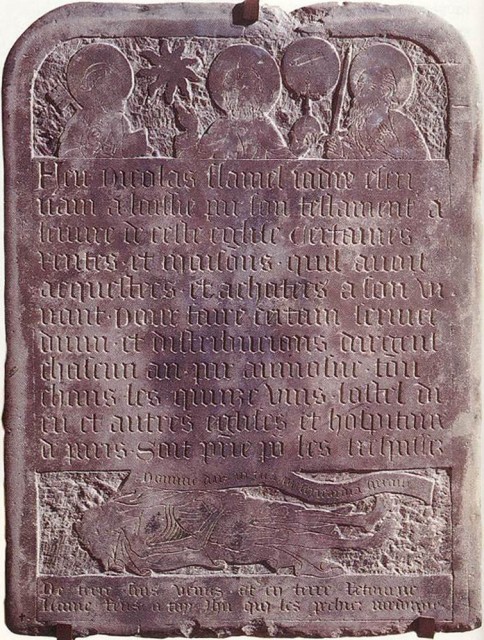 Feu nicolas flamel iadis escri
uain a laissie par son testament a
leuure de ceste eglise certaines
rentes et maisons quil auoit
acquestees et achatees a son vi
uant pour faire certain seruice
diuin et distribucions dargent
chascun an par aumosne tou
chans les quinze vins lostel di
eu et autres eglises et hospitaux
de paris Soit prie po les trespasses
Domine deus in tua misericordia speraui
De terre suis venus et en terre retourne
Lame rens a toy Jhu qui les pechiez pardonne